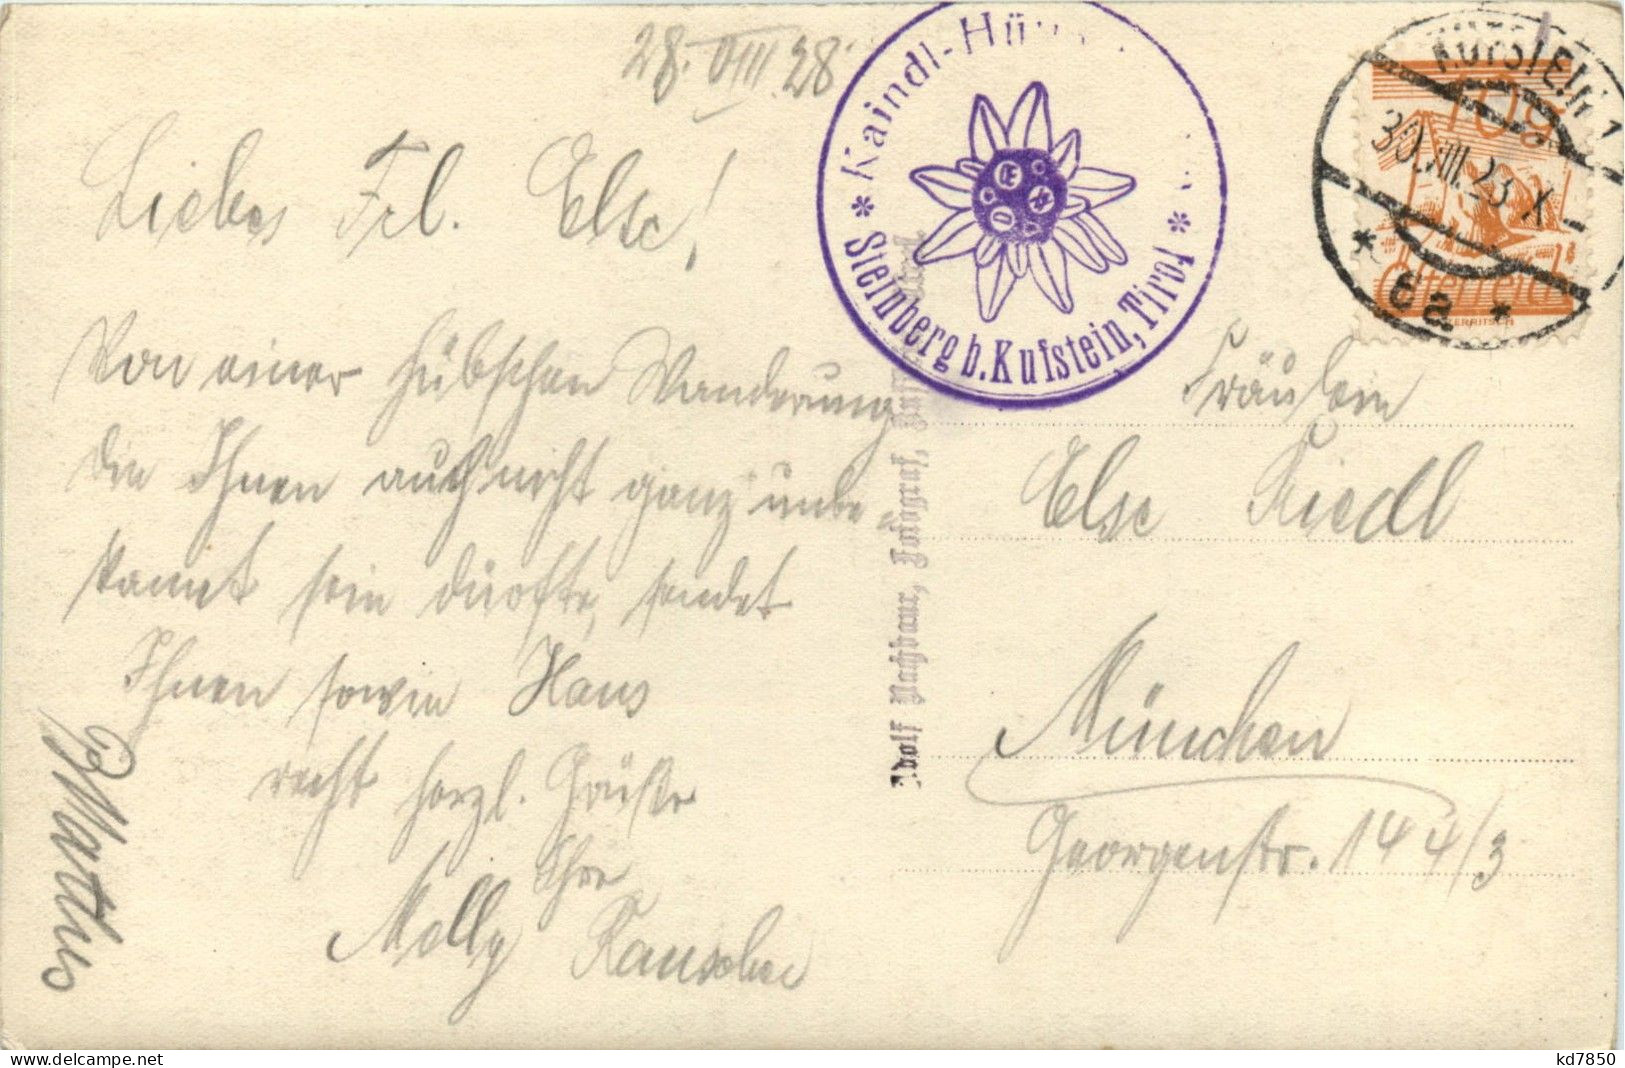 28. VIII 28
Kaindl-Hü
* Steinberg b. Kufstein, Tirol *
OE
KUFSTEIN 1
30.VIII.28 X
* 6a *
10g
Österreich
Liebes Frl. Else!
Von einer hübschen Wanderung
die Ihnen auch nicht ganz unbe-
kannt sein dürfte, sendet
Ihnen sowie Hans
recht herzl. Grüße
Ihre
Molly
Mathes
Adolf Nachbaur, Fotograf,
Fräulein
Else Riedl
München
Georgenstr. 144/3
kd7850